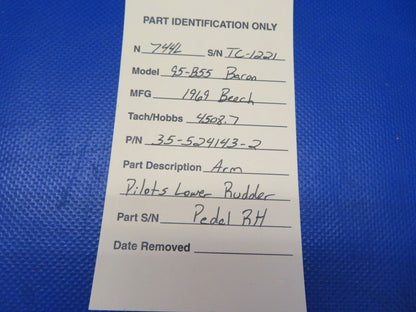 PART IDENTIFICATION ONLY
N 744L S/N TC-1221
Model 95-B55 Baron
MFG 1969 Beech
Tach/Hobbs 4508.7
P/N 35-524143-2
Part Description Arm
Pilots Lower Rudder
Part S/N Pedel RH
Date Removed